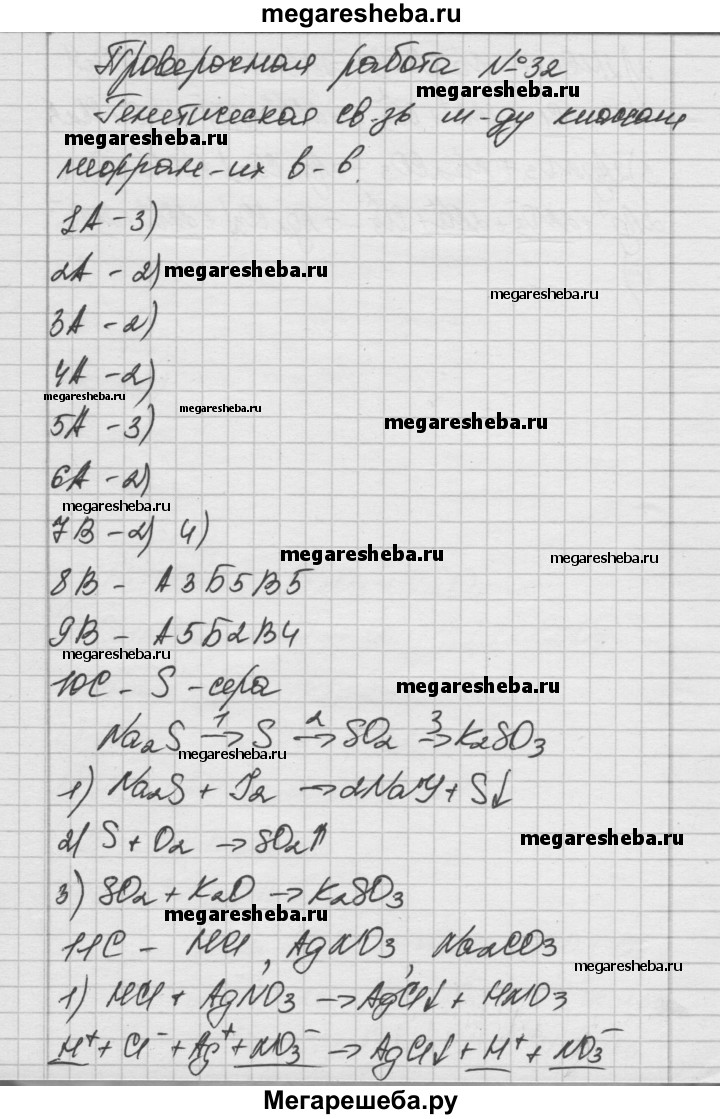 megaresheba.ru
Проверочная работа №32
megaresheba.ru
Генетическая св-зь м-ду классами
megaresheba.ru
неорган-их в-в.
1А - 3)
2А - 2) megaresheba.ru
megaresheba.ru
3А - 2)
4А - 2)
megaresheba.ru
megaresheba.ru
5А - 3)
megaresheba.ru
6А - 2)
megaresheba.ru
7В - 2) 4)
megaresheba.ru
8В - А3Б5В5
9В - А5Б2В4
megaresheba.ru
10С - S - сера
megaresheba.ru
Na2S →1 S →2 SO2 →3 K2SO3
megaresheba.ru
1) Na2S + I2 → 2NaI + S↓
2) S + O2 → SO2↑
megaresheba.ru
3) SO2 + K2O → K2SO3
megaresheba.ru
11С - HCl, AgNO3, Na2CO3
megaresheba.ru
1) HCl + AgNO3 → AgCl↓ + HNO3
H⁺ + Cl⁻ + Ag⁺ + NO3⁻ → AgCl↓ + H⁺ + NO3⁻
Мегарешеба.ру